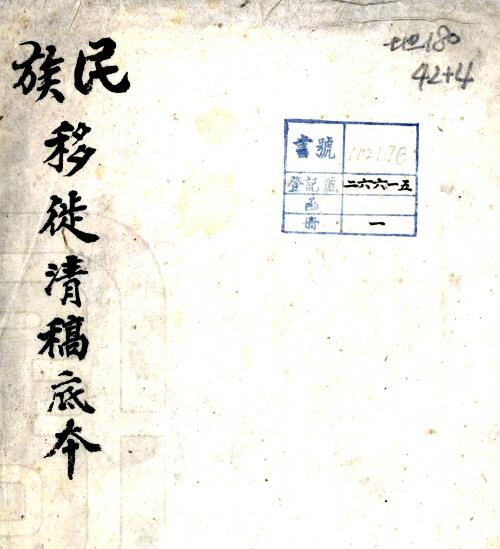 民族移徙清稿底本
地180
42+4
書號 1121.76
登記號 二六六一五
函
冊 一